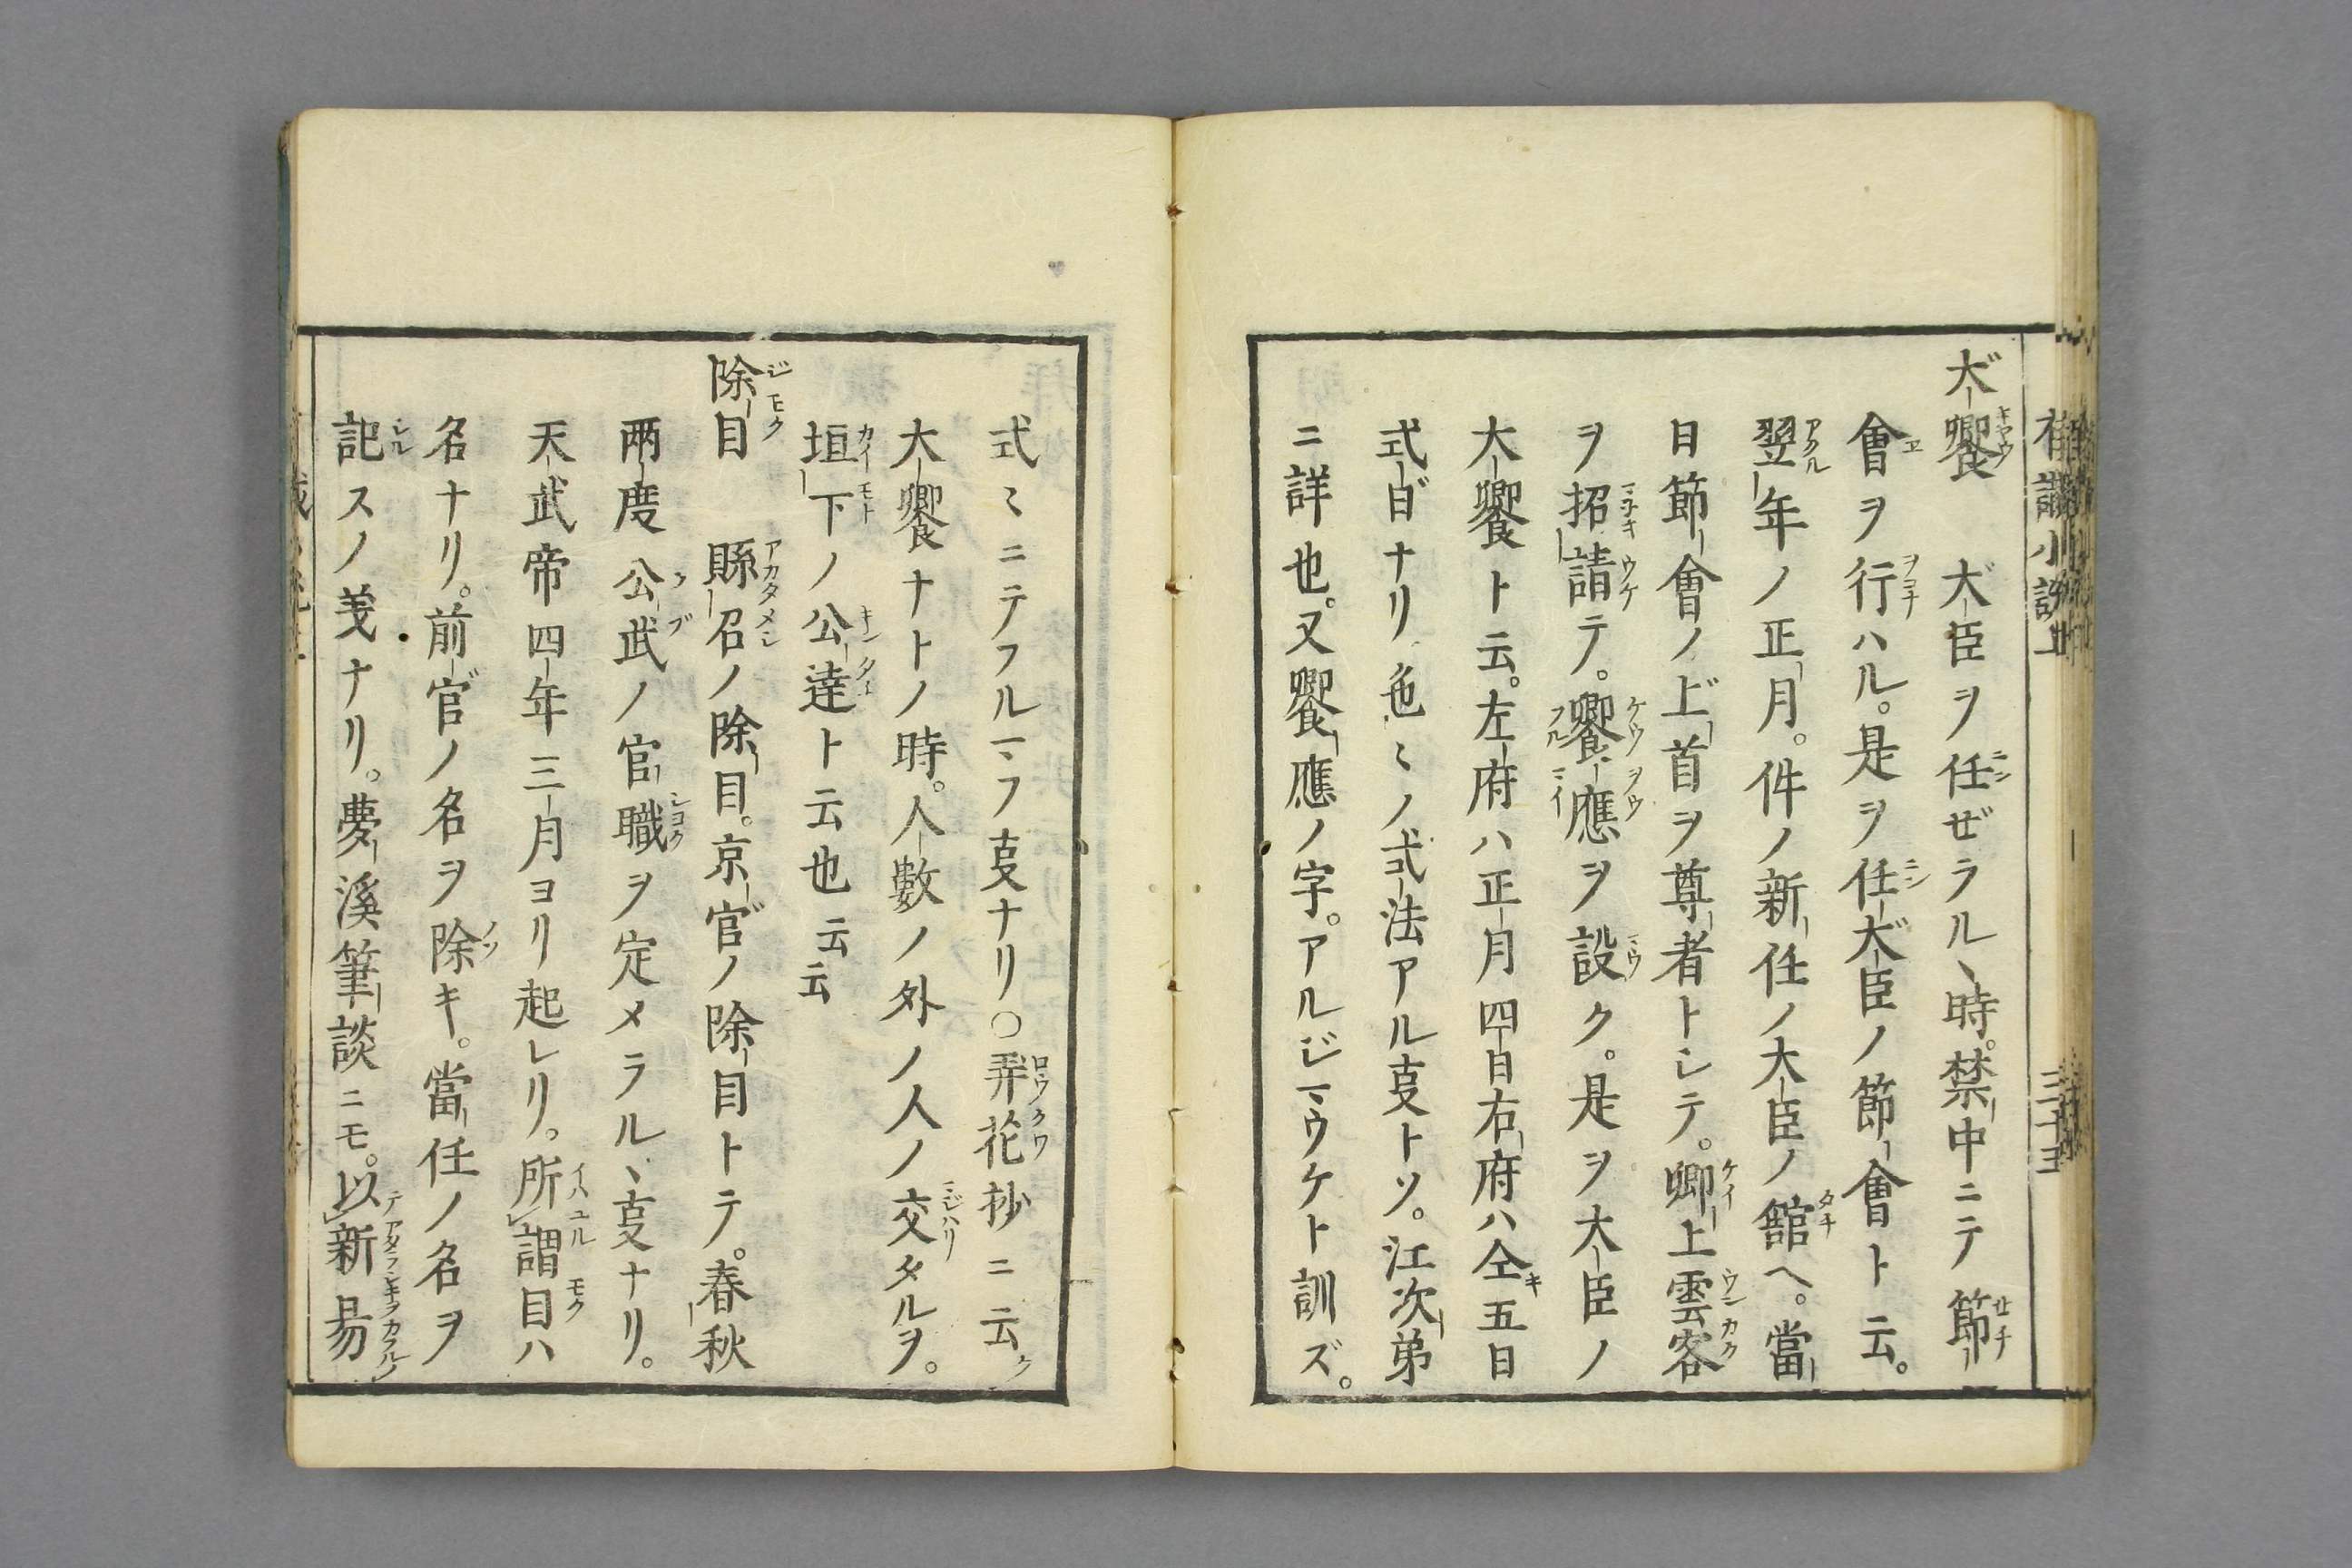 大饗　大臣ヲ任ゼラル丶時。禁中ニテ節
會ヲ行ハル。是ヲ任大臣ノ節會ト云。
翌年ノ正月。件ノ新任ノ大臣ノ舘ヘ。當
日節會ノ上首ヲ尊者トシテ。卿上雲客
ヲ招請テ。饗應ヲ設ク。是ヲ大臣ノ
大饗ト云。左府ハ正月四日右府ハ仝五日
式日ナリ色〻ノ式法アル𫝆トソ。江次弟
ニ詳也。又饗應ノ字。アルジマウケト訓ズ。
式〻ニテフルマフ𫝆ナリ○弄花抄ニ云ク
大饗ナトノ時。人數ノ外ノ人ノ交タルヲ。
垣下ノ公達ト云也云云
除目　縣召ノ除目。京官ノ除目トテ。春秋
兩度公武ノ官職ヲ定メラル丶𫝆ナリ。
天武帝四年三月ヨリ起レリ。所謂目ハ
名ナリ。前官ノ名ヲ除キ。當任ノ名ヲ
記スノ義ナリ。夢溪筆談ニモ。以新易